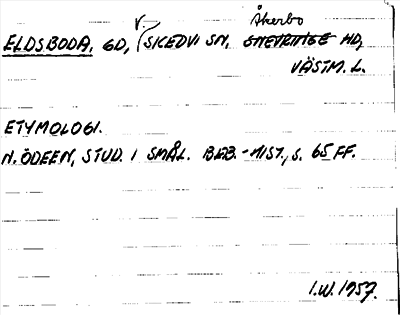 V. Åkerbo
ELDSBODA, GD, SKEDVI SN, HD,
VÄSTM. L.
ETYMOLOGI.
N. ÖDEEN, STUD. I SMÅL. BEB.-HIST., S. 65 FF.
I.W. 1957.